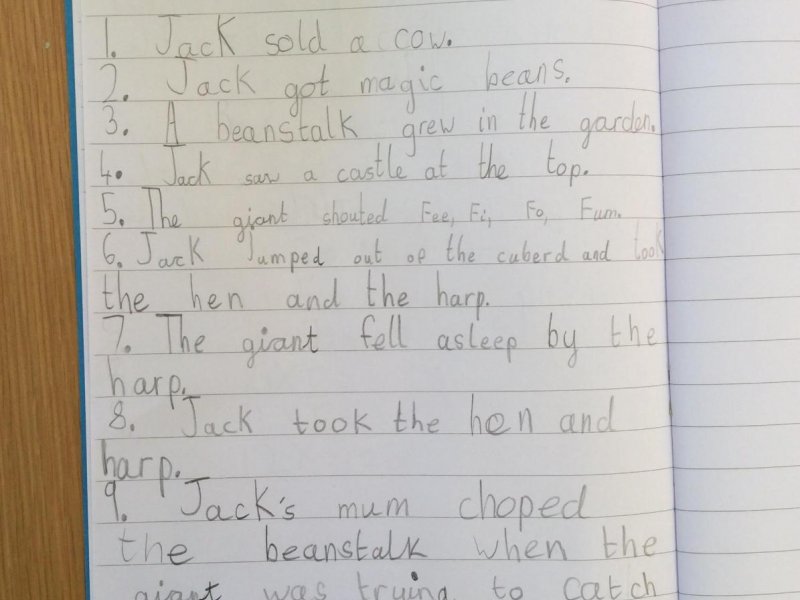 1. Jack sold a cow.
2. Jack got magic beans.
3. A beanstalk grew in the garden.
4. Jack saw a castle at the top.
5. The giant shouted Fee, Fi, Fo, Fum.
6. Jack Jumped out of the cuberd and took
the hen and the harp.
7. The giant fell asleep by the
harp.
8. Jack took the hen and
harp.
9. Jack's mum choped
the beanstalk when the
giant was trying to catch